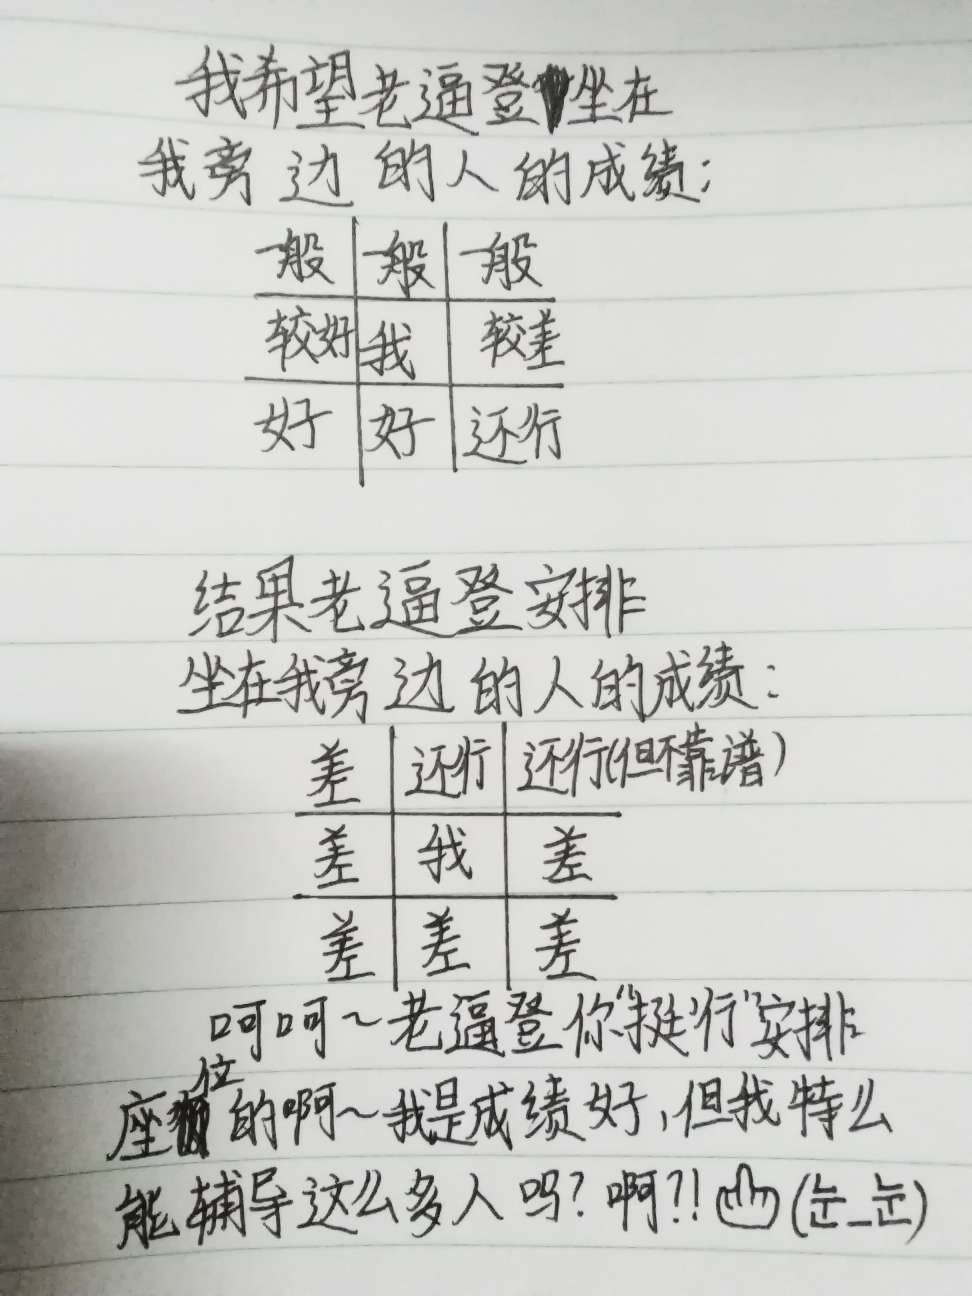 我希望老逼登坐在
我旁边的人的成绩：
一般 一般 一般
较好 我 较差
好 好 还行
结果老逼登安排
坐在我旁边的人的成绩：
差 还行 还行(但不靠谱)
差 我 差
差 差 差
呵呵~老逼登你“挺行”安排
座位的啊~我是成绩好，但我特么
能辅导这么多人吗？啊？！(눈_눈)